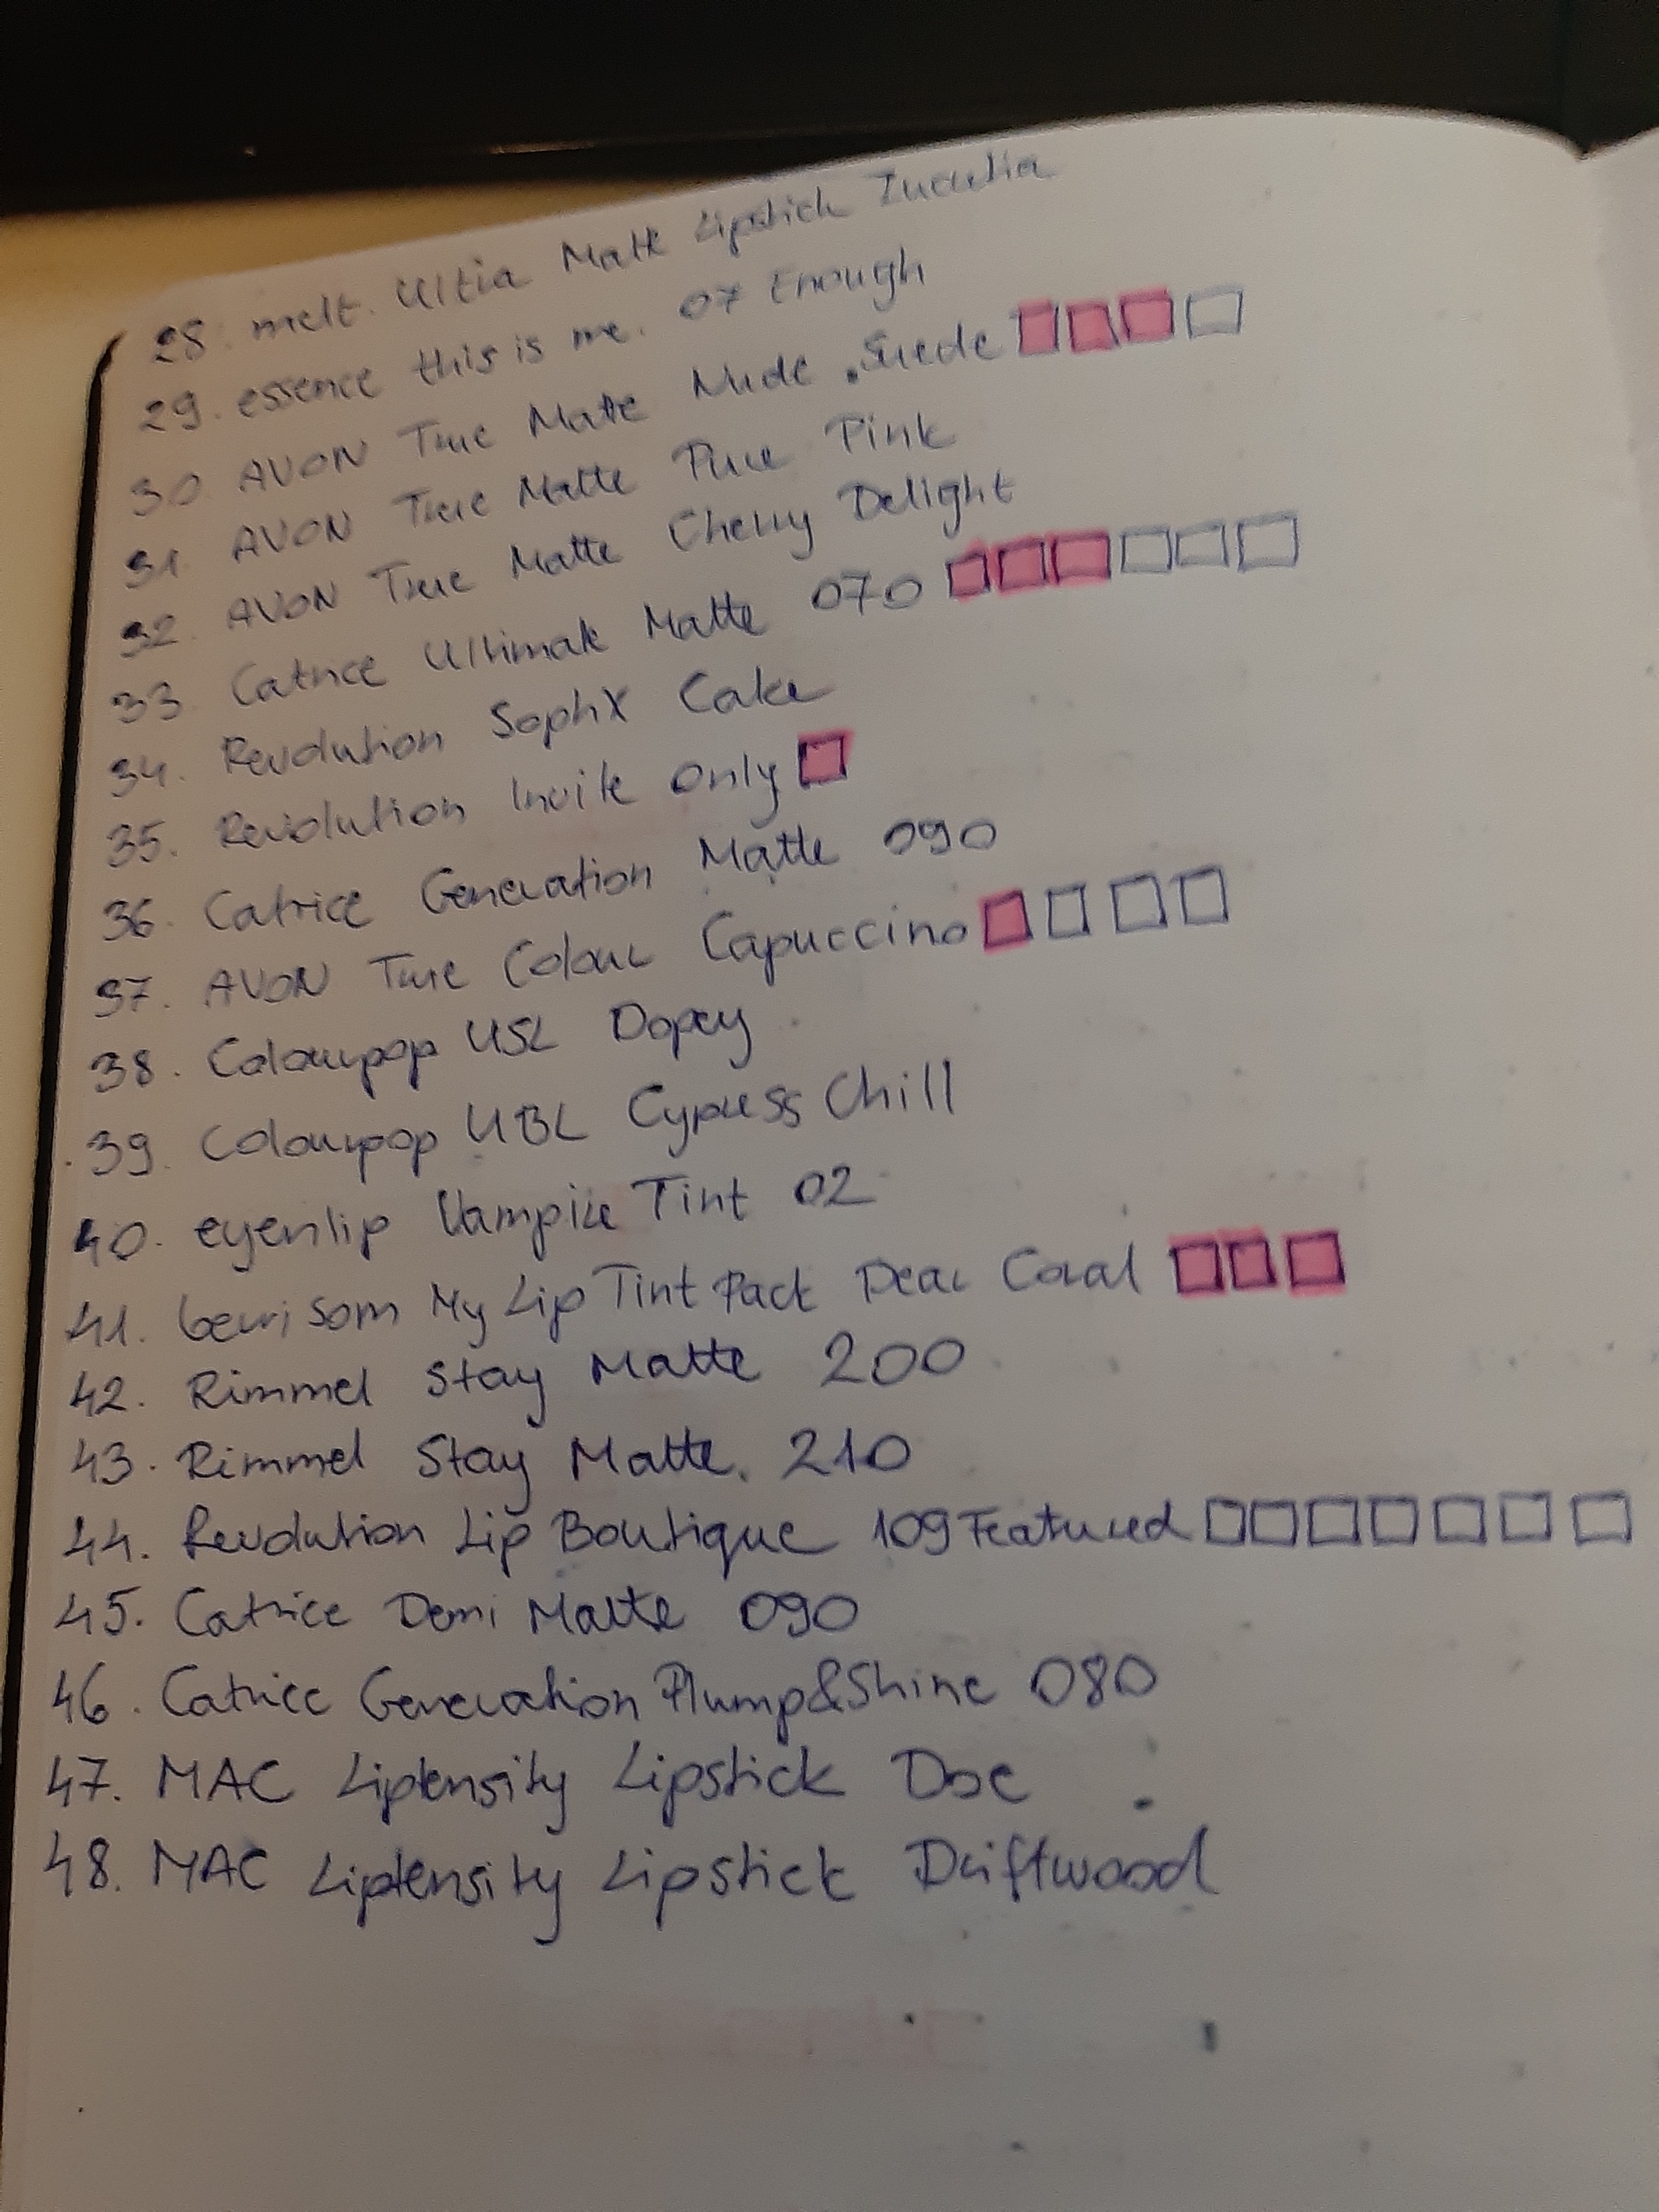 28. melt. Ultra Matte Lipstick
29. essence this is me. 07 Enough
30 AVON True Matte Nude Suede
31 AVON True Matte Pure Pink
32. AVON True Matte Cherry Delight
33 Catrice Ultimate Matte 070
34. Revolution SophX Cake
35. Revolution Invite Only
36. Catrice Generation Matte 090
37. AVON True Colour Capuccino
38. Colourpop USL Dopey
39. Colourpop UBL Cypress Chill
40. eyenlip Vampire Tint 02
41. berrisom My Lip Tint Pack Dear Coral
42. Rimmel Stay Matte 200
43. Rimmel Stay Matte. 210
44. Revolution Lip Boutique 109 Featured
45. Catrice Demi Matte 090
46. Catrice Generation Plump&Shine 080
47. MAC Liptensity Lipstick Doe
48. MAC Liptensity Lipstick Driftwood